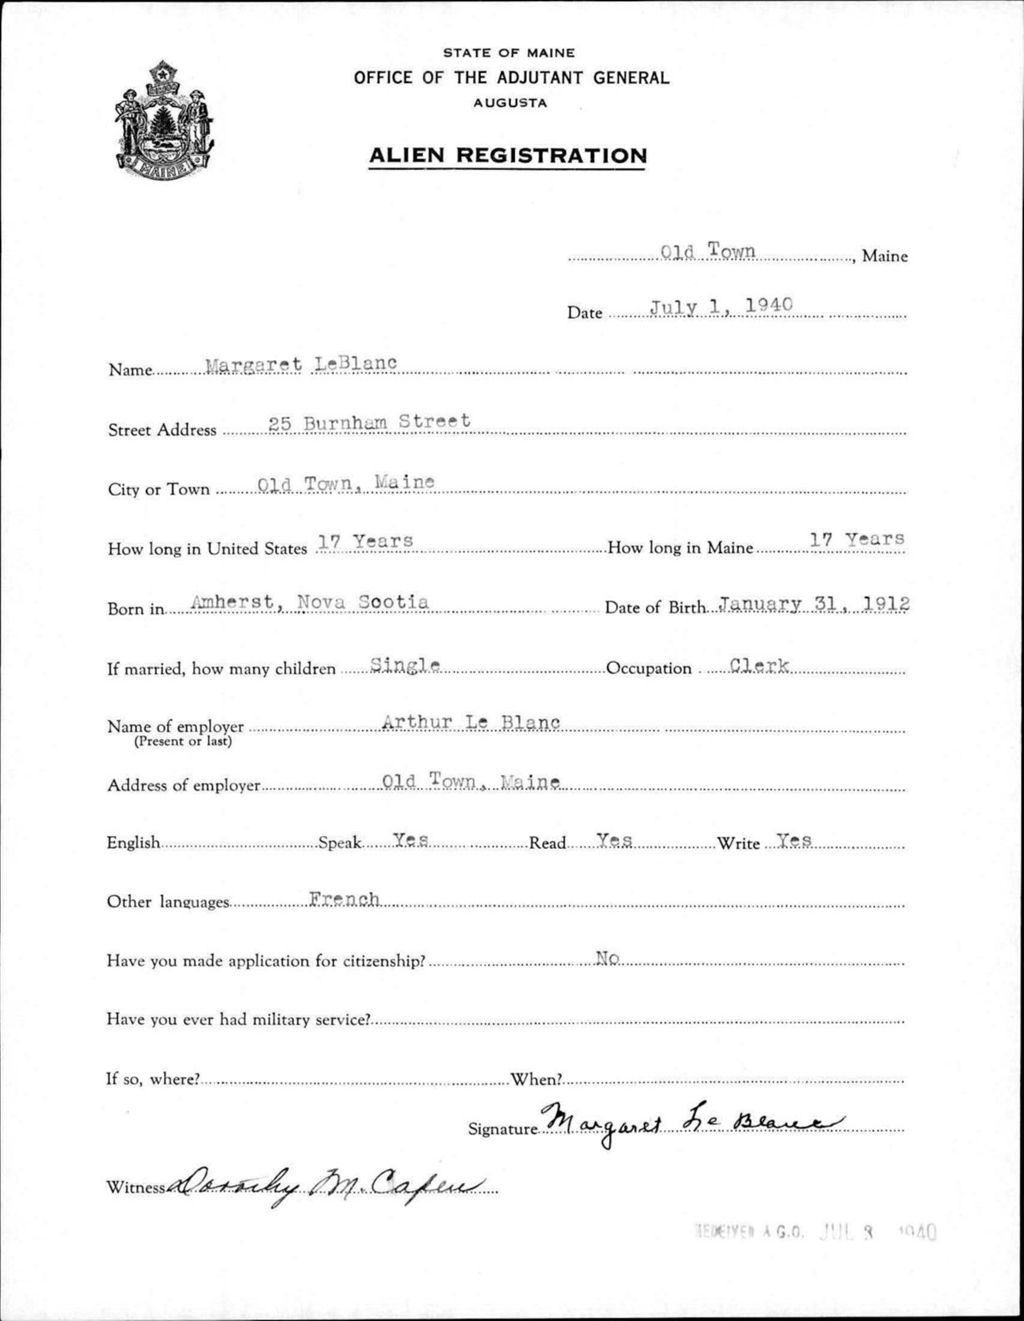 STATE OF MAINE
OFFICE OF THE ADJUTANT GENERAL
AUGUSTA
ALIEN REGISTRATION
MAINE
Old Town, Maine
Date July 1, 1940
Name Margaret LeBlanc
Street Address 25 Burnham Street
City or Town Old Town, Maine
How long in United States 17 Years How long in Maine 17 Years
Born in Amherst, Nova Scotia Date of Birth January 31, 1912
If married, how many children Single Occupation Clerk
Name of employer Arthur Le Blanc
(Present or last)
Address of employer Old Town, Maine
English Speak Yes Read Yes Write Yes
Other languages French
Have you made application for citizenship? No
Have you ever had military service?
If so, where? When?
Signature Margaret Le Blanc
Witness Dorothy M. Capen
RECEIVED A.G.O. JUL 3 1940